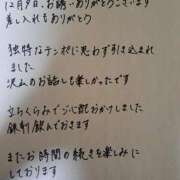 12月9日、お誘いありがとうございます
差し入れもありがとう
独特なテンポに思わず引き込まれ
ました
沢山のお話しも楽しかったです
立ちくらみで心配おかけしました
鉄剤飲んでおきます
またお時間の続きを楽しみに
しております